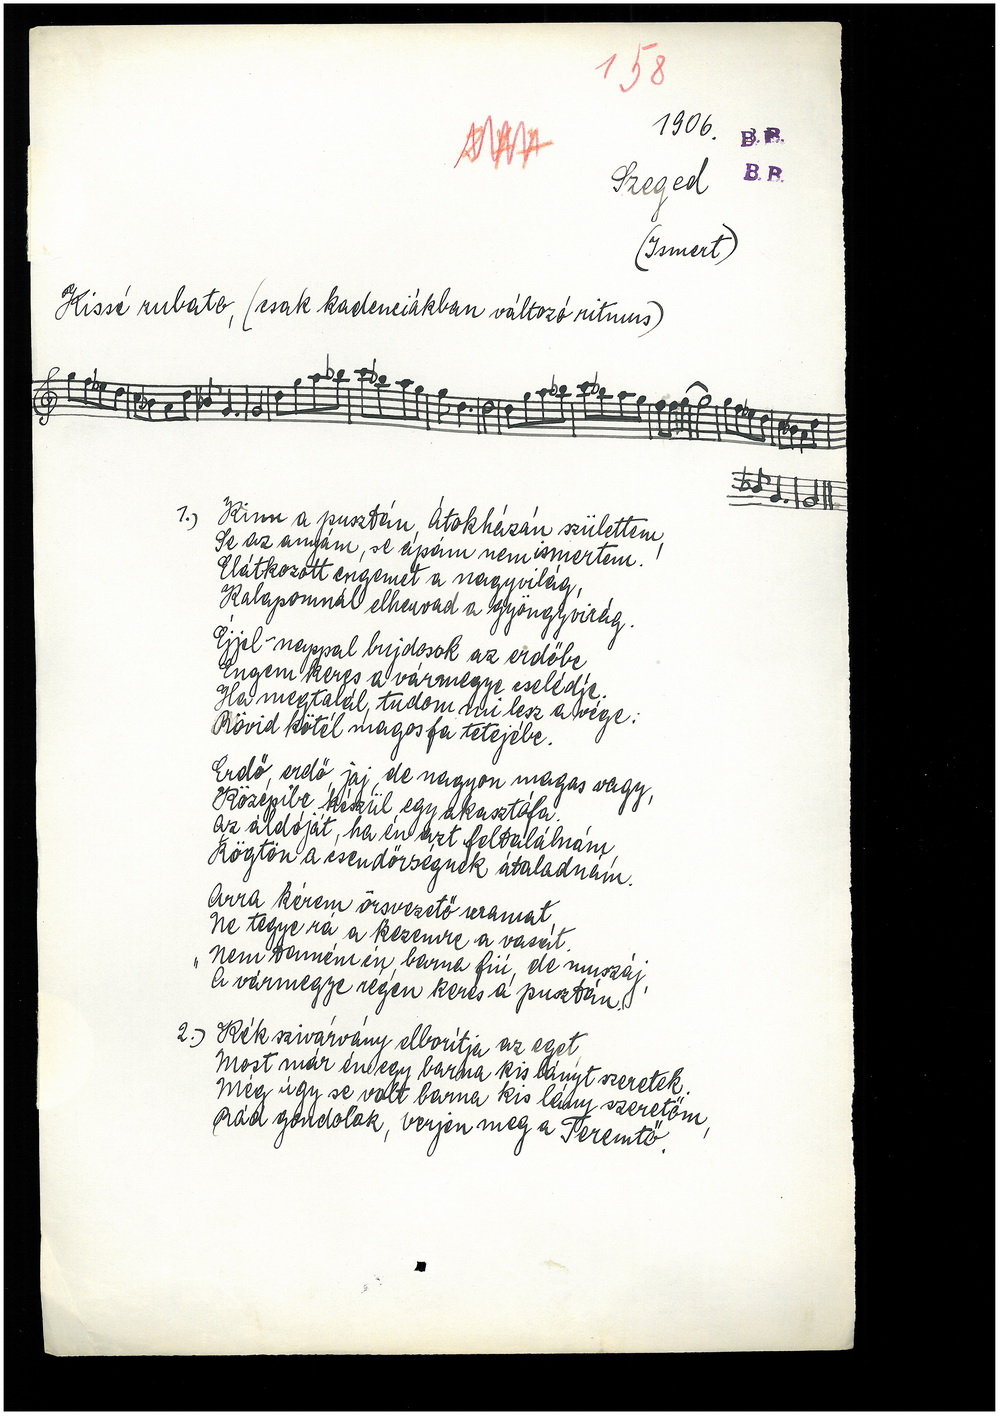 158
1906.
B. B.
Szeged
B. B.
(Ismert)
Kissé rubato, (csak kadenciákban változó ritmus)
1.) Kinn a pusztán, Átokházán születtem,
Se az anyám, se ápám nem ismertem!
Elátkozott engemet a nagyvilág,
Kalapomnál elhervad a gyöngyvirág.
Éjjel-nappal bujdosok az erdőbe
Engem keres a vármegye cselédje.
Ha megtalál, tudom mi lesz a vége:
Rövid kötél magos fa tetejébe.
Erdő, erdő, jaj, de nagyon magas vagy,
Közepibe készül egy akasztófa.
Az áldóját, ha én azt feltalálnám
Rögtön a csendőrségnek átaladnám.
Arra kérem őrsvezető uramat,
Ne tegye rá a kezemre a vasát.
„Nem tenném én, barna fiú, de muszáj,
A vármegye régen keres a pusztán."
2.) Kék szivárvány elborítja az eget
Most már én egy barna kis lányt szeretek.
Még úgy se volt barna kis lány szeretőm,
Rád gondolok, verjen meg a Teremtő.